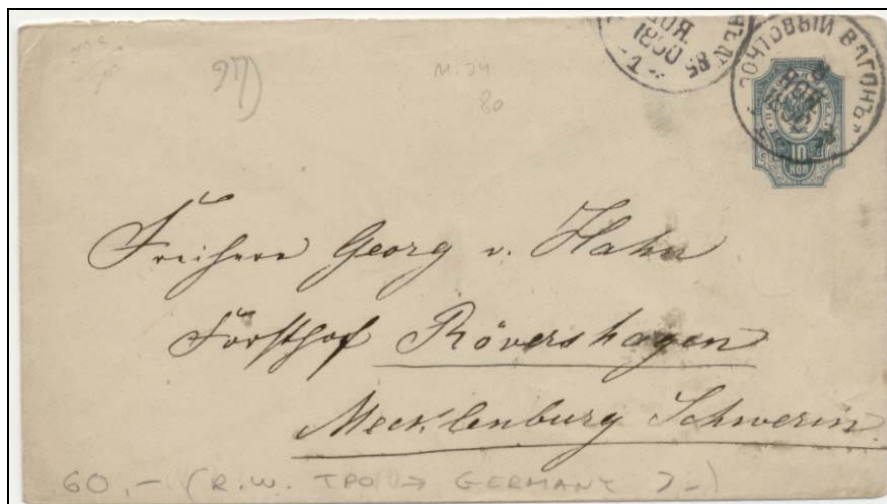 97)
M:24
80
ПОЧТОВЫЙ ВАГОНЪ
10
КОП
Freiherr Georg v. Hahn
Forsthof Rövershagen
Mecklenburg Schwerin
60,- (R.W. TPO → GERMANY